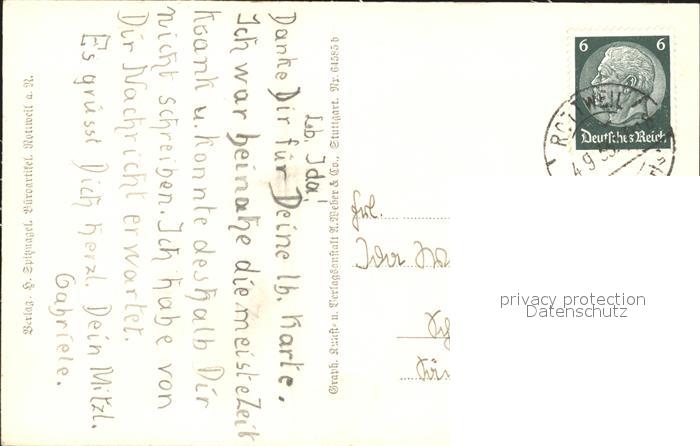 Lb. Ida!
Danke Dir für Deine lb. Karte.
Ich war beinahe die meiste Zeit
Krank u. konnte deshalb Dir
nicht schreiben. Ich habe von
Dir Nachricht erwartet.
Es grüsst Dich herzl. Dein Mitzl.
Gabriele.
Verlag. H. Spitznagel. Büroartikel. Rottweil a. N.
Graph. Kunst- u. Verlagsanstalt A. Weber & Co., Stuttgart. Nr. 64585 b
6 6
Deutsches Reich
ROTTWEIL
4.9.
Frl.
Ida
privacy protection
Datenschutz